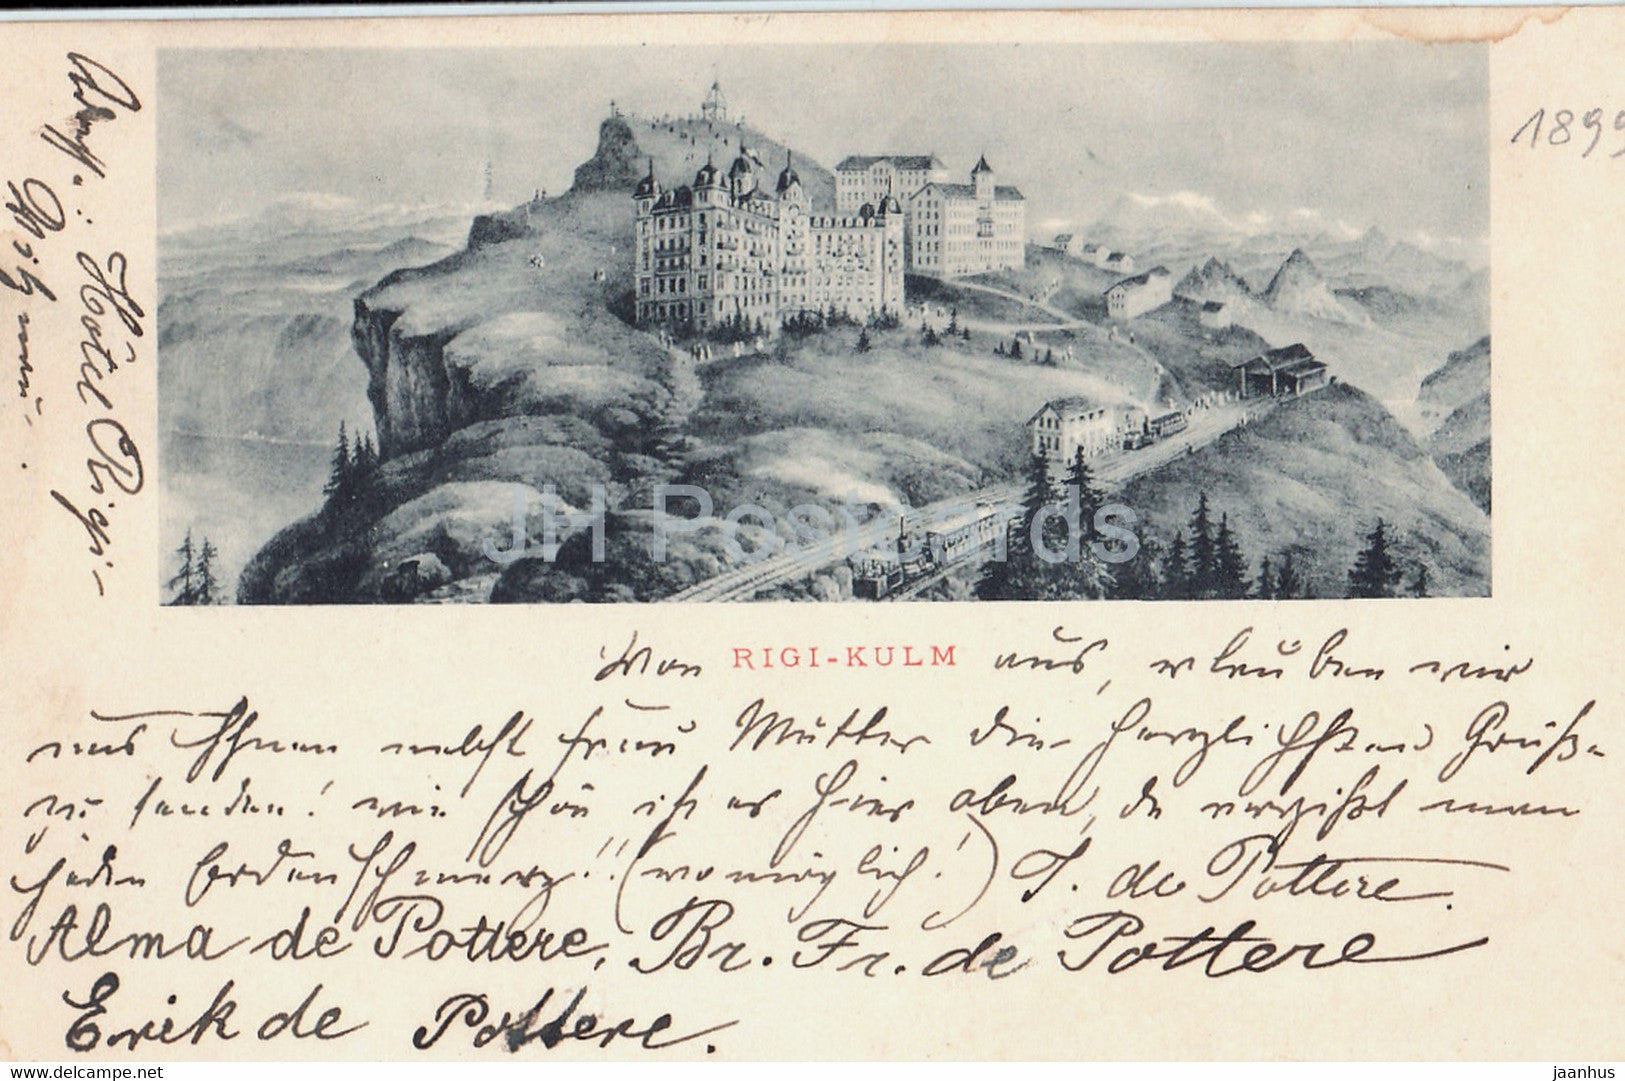 1899
Adr.: Hôtel Rigi-
Von RIGI-KULM aus, erleuben wir
uns Ihnen nebst Frau Mutter die herzlichsten Grüße
zu senden! wie schön ist es hier oben, da vergißt man
jeden Erdenschmerz!! (wo möglich!) J. de Pottere.
Alma de Pottere, Br. Fr. de Pottere
Erik de Pottere.
JH Postcards
www.delcampe.net
jaanhus